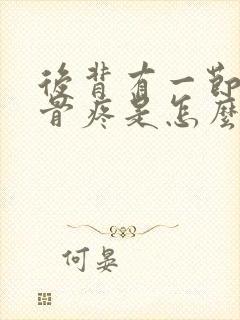 後背有一節
骨疼是怎麼
何晏